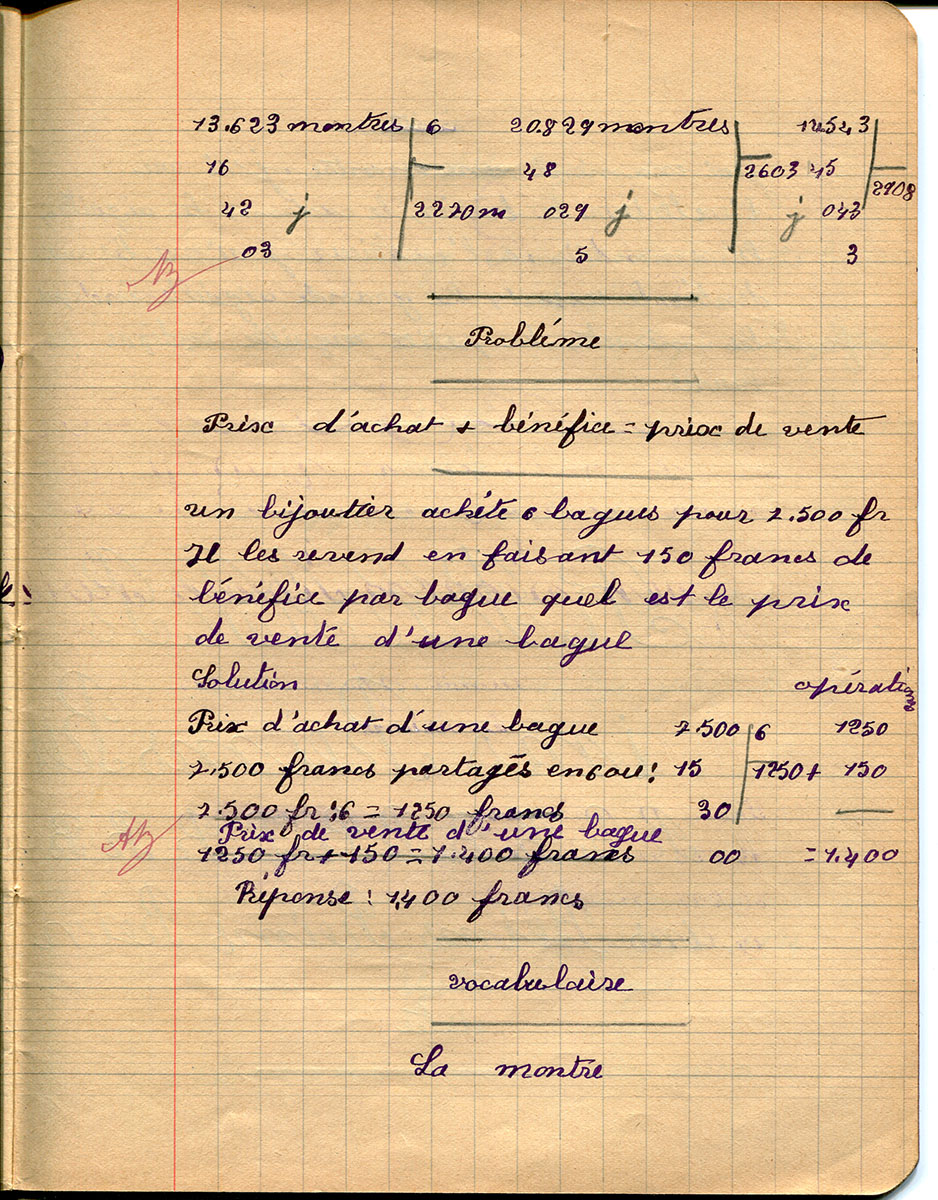 13.623 montres 6 20.829 montres 14543
16 48 2603 45
42 j 2270m 029 j j 043 2908
03 5 3
Probléme
Prix d'achat + bénéfice = prix de vente
un bijoutier achéte 6 bagues pour 7.500 fr
Il les revend en faisant 150 francs de
bénéfice par bague quel est le prix
de vente d'une bague
Solution opérations
Prix d'achat d'une bague 7.500 6 1250
7.500 francs partagés en 6 ou : 15 1250 + 150
7.500 fr : 6 = 1250 francs 30
Prix de vente d'une bague
1250 fr + 150 = 1.400 francs 00 = 1.400
Réponse : 1,400 francs
vocabulaire
La montre